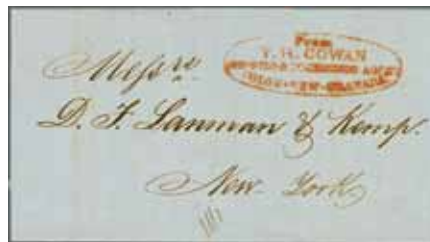 From
COWAN
NEW-GRANADA
Messrs.
D. T. Lanman & Kemp.
New York